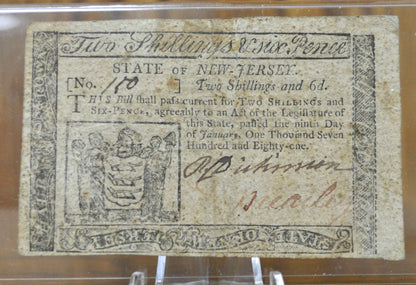 Two Shillings & six Pence
STATE OF NEW-JERSEY.
[No. 150 ] Two Shillings and 6d.
THIS Bill shall pass current for TWO SHILLINGS and
SIX-PENCE, agreeably to an Act of the Legislature of
this State, passed the ninth Day
of January, One Thousand Seven
Hundred and Eighty-one.
STATE OF